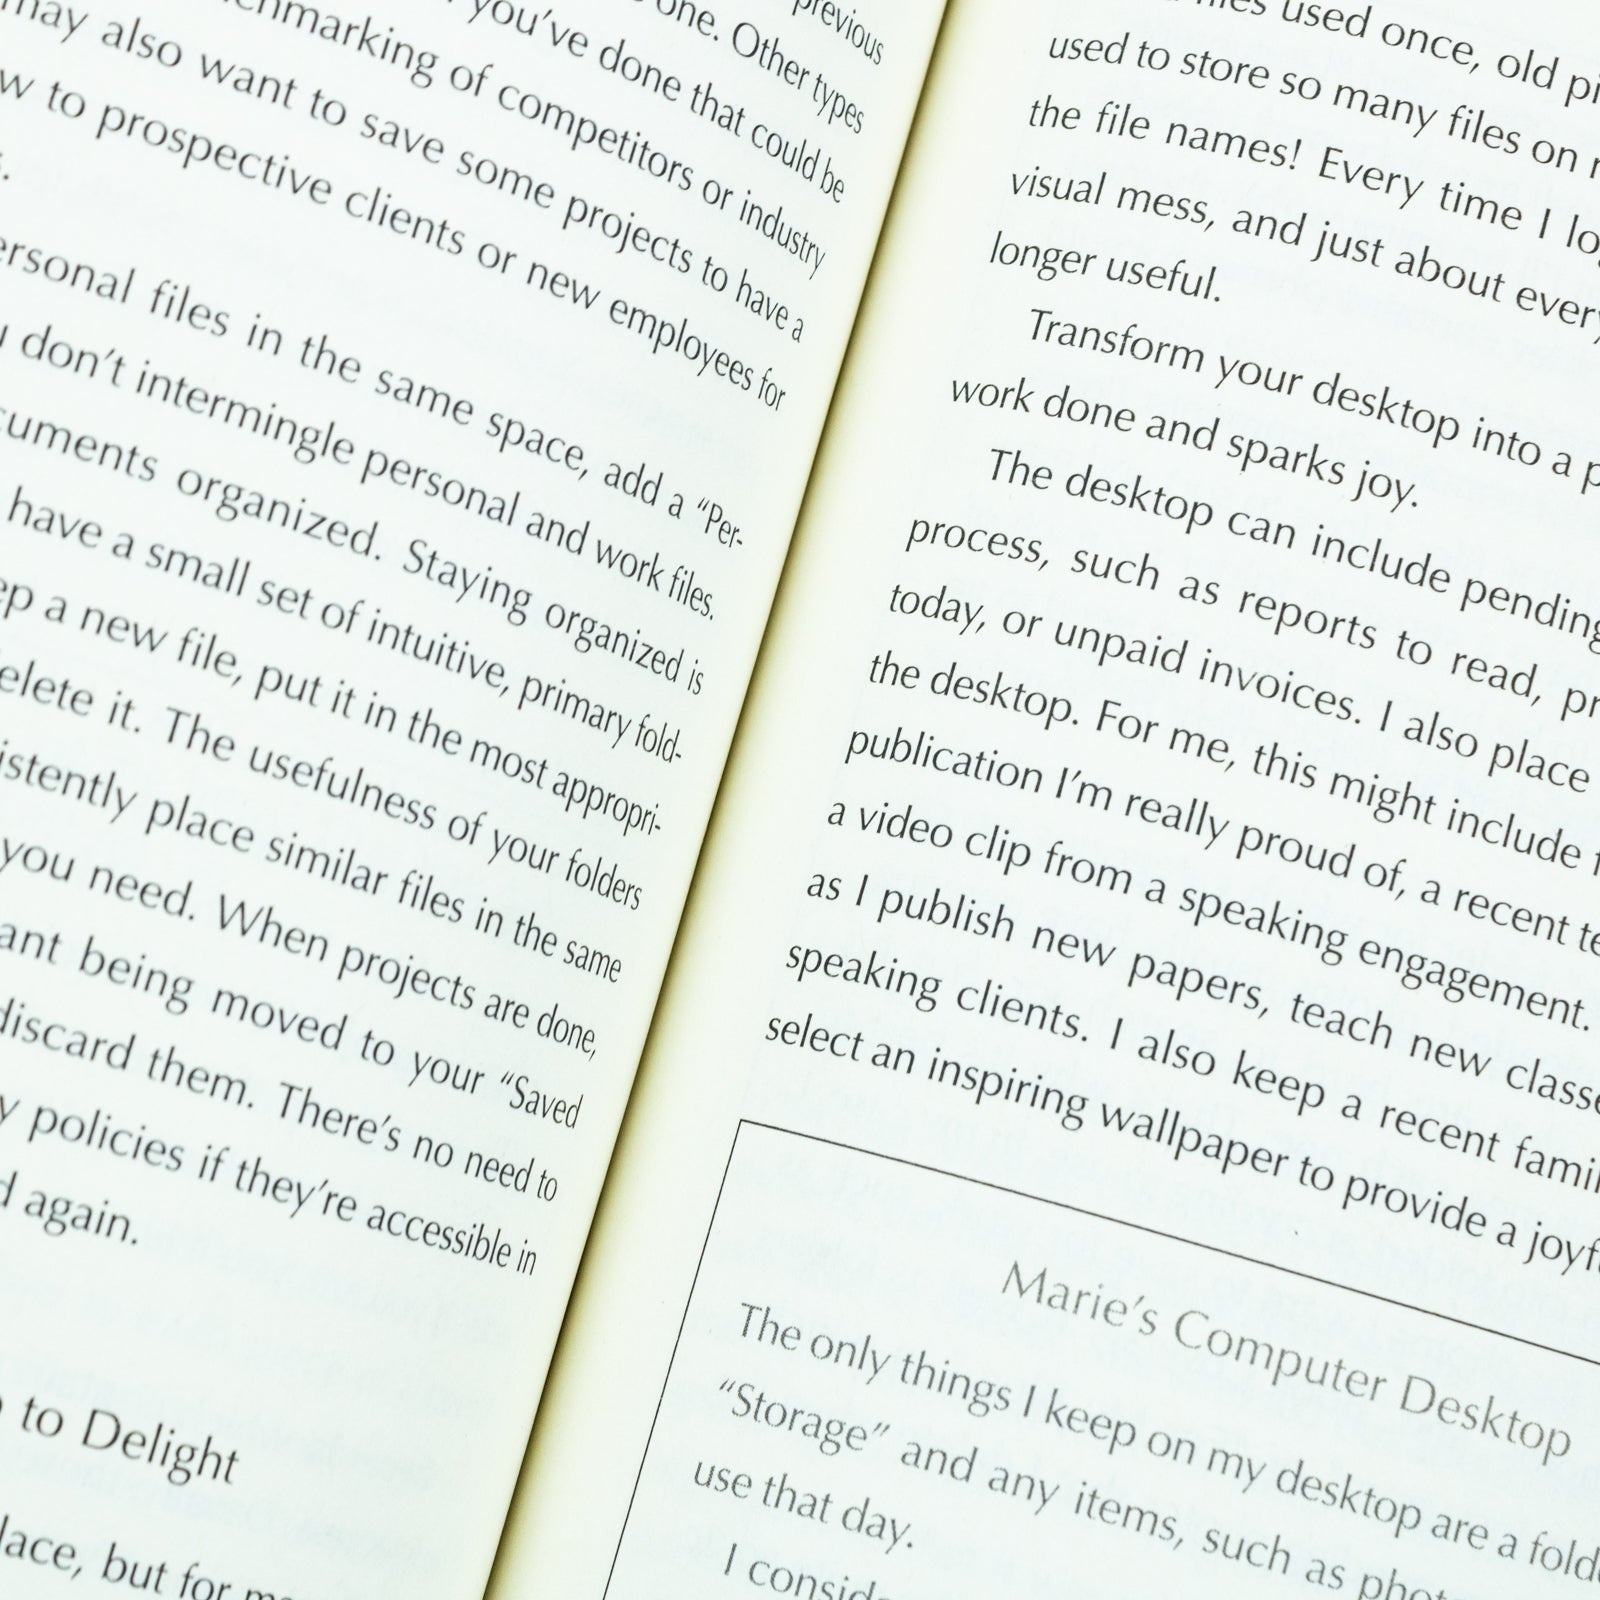 previous
one. Other types
you've done that could be
of competitors or industry
may also want to save some projects to have a
to prospective clients or new employees for
files in the same space, add a "Per-
don't intermingle personal and work files.
organized. Staying organized is
have a small set of intuitive, primary fold-
a new file, put it in the most appropri-
it. The usefulness of your folders
place similar files in the same
you need. When projects are done,
being moved to your "Saved
discard them. There's no need to
policies if they're accessible in
again.
to Delight
but for
used once, old
used to store so many files on
the file names! Every time I
visual mess, and just about
longer useful.
Transform your desktop into a
work done and sparks joy.
The desktop can include pending
process, such as reports to read,
today, or unpaid invoices. I also place
the desktop. For me, this might include
publication I'm really proud of, a recent
a video clip from a speaking engagement.
as I publish new papers, teach new
speaking clients. I also keep a recent
select an inspiring wallpaper to provide a
Marie's Computer Desktop
The only things I keep on my desktop are a
"Storage" and any items, such as
use that day.
I